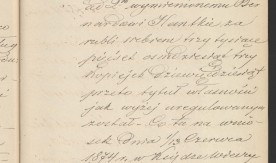 od Da wymienionemu Ber-
nardowi Kantke, za
rubli srebrem trzy tysiące
pięćset osmdziesiąt trzy
kopiejek dziewięćdziesiąt
przeto tytuł własności
jak wyżej uregulowanym
został. Co ta na wnio-
sek dnia 1/13 Czerwca
1874 r. w Księdze wieczy